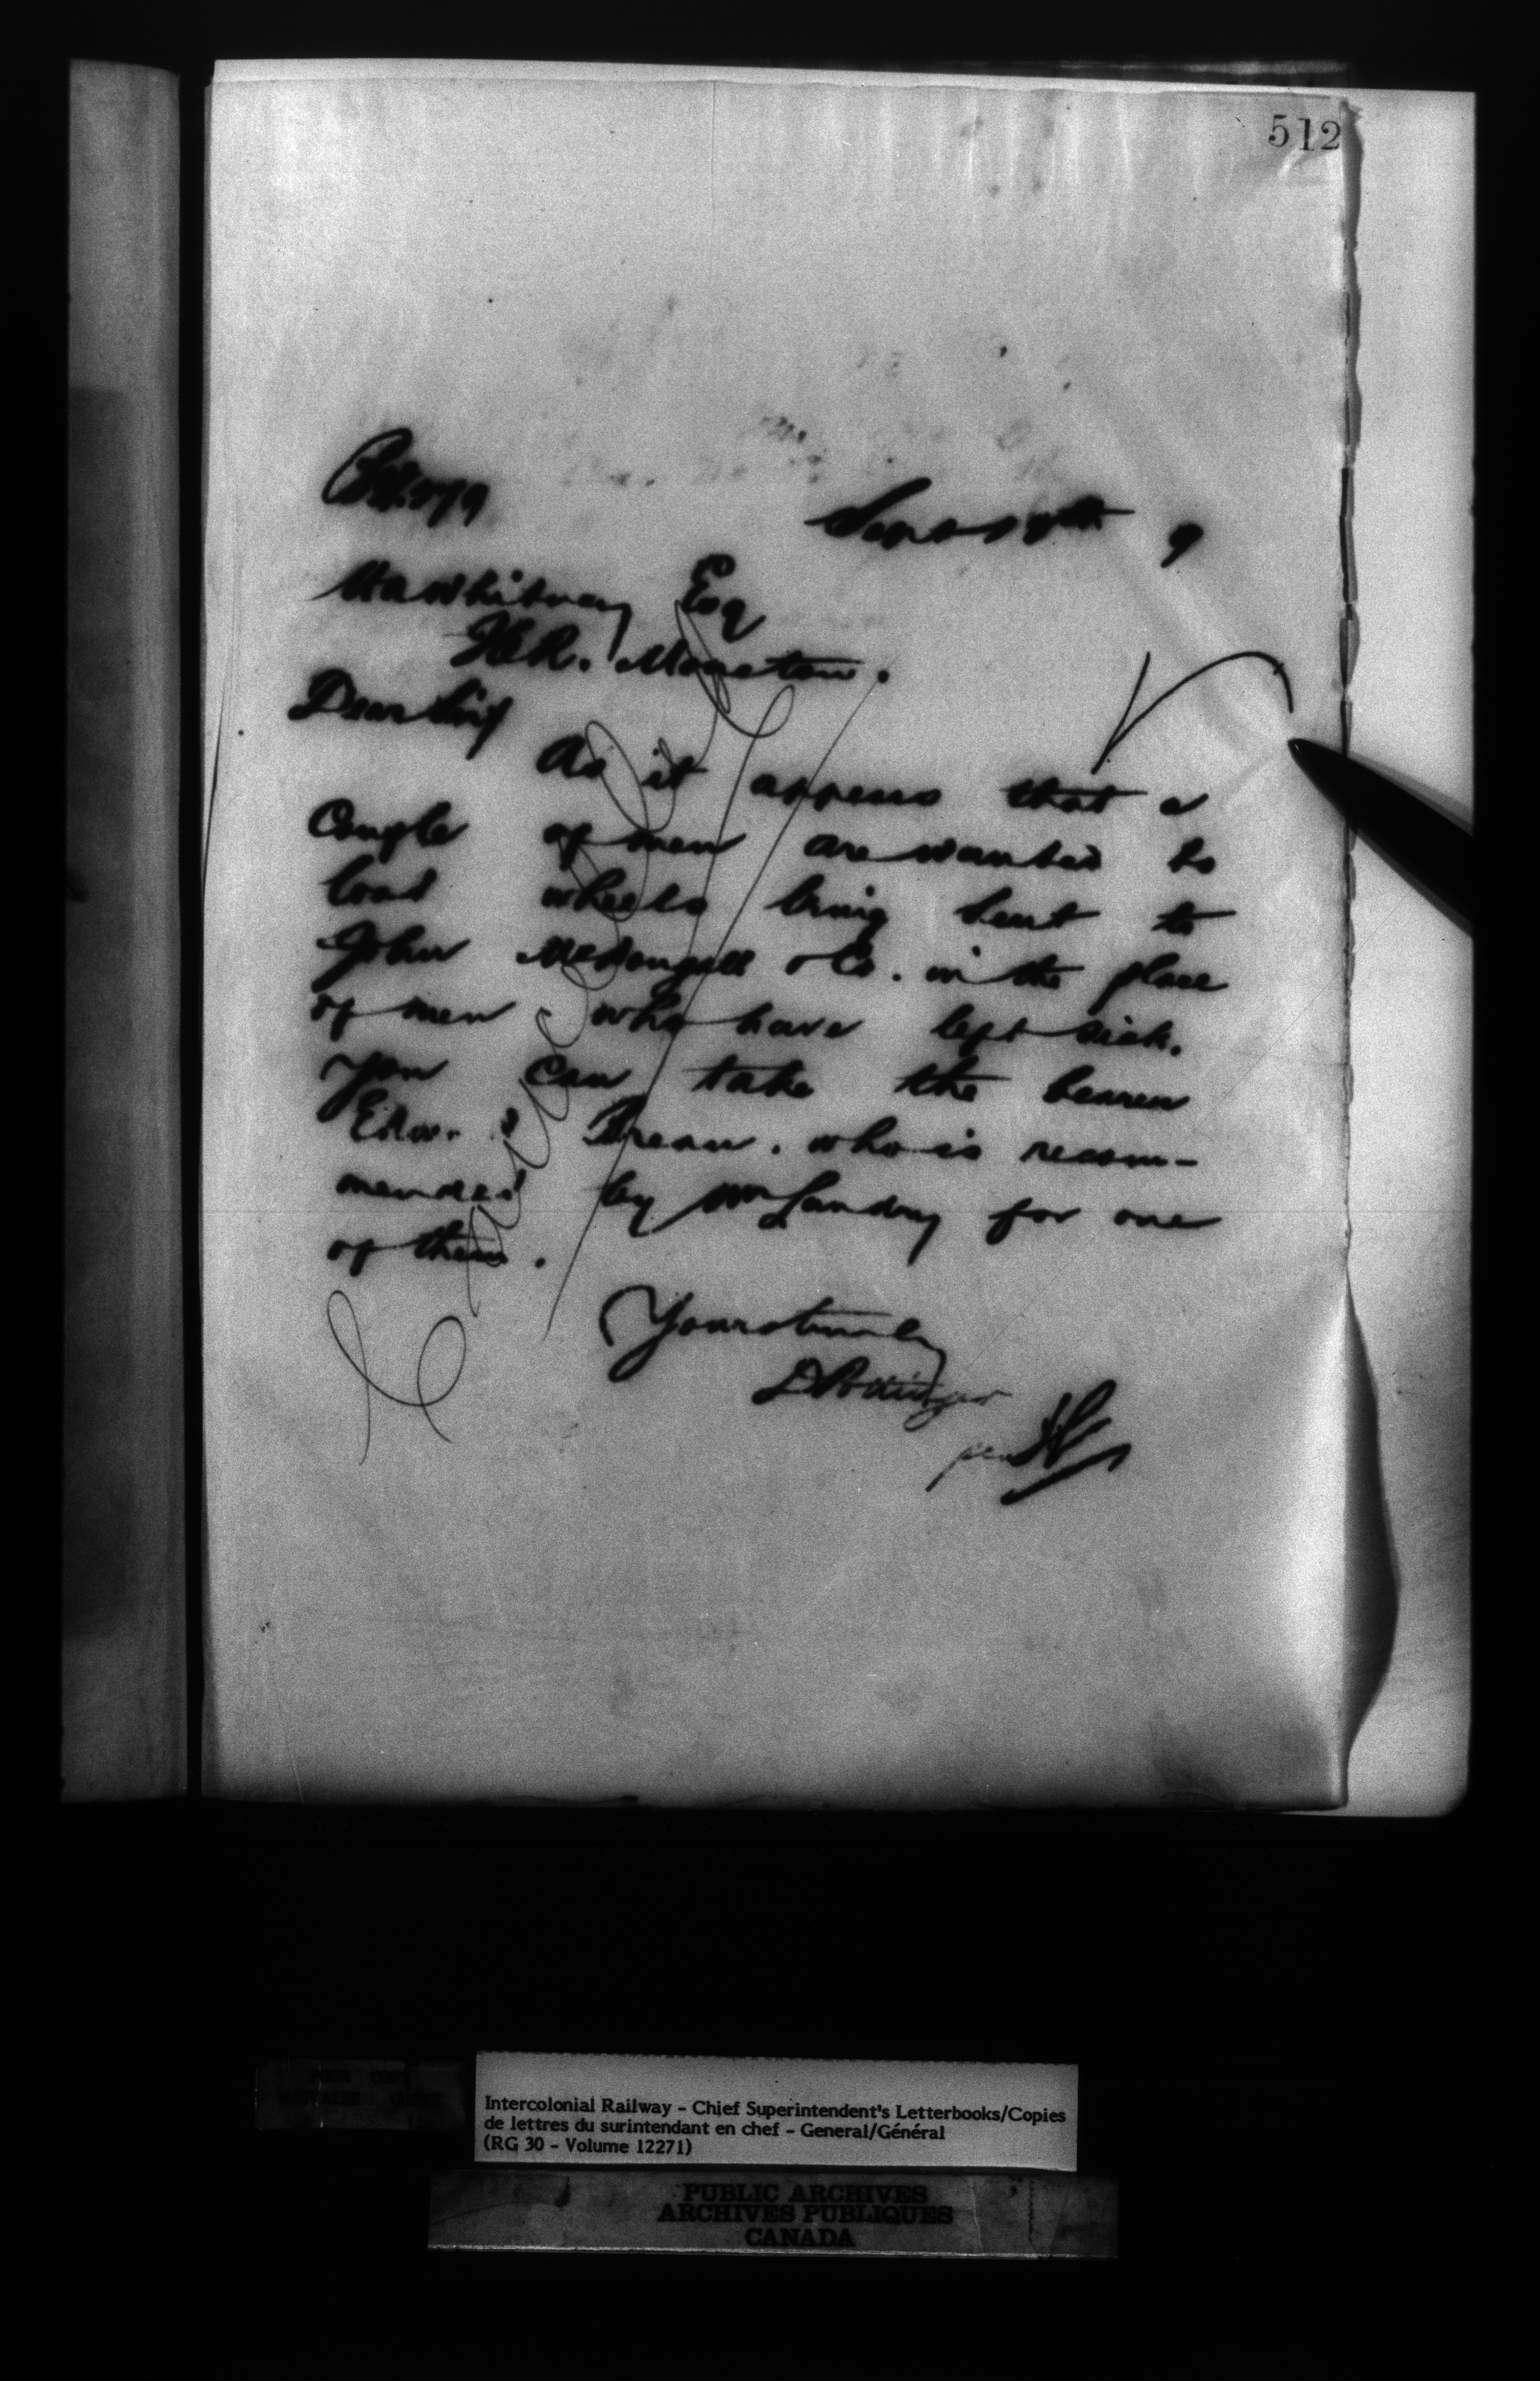 512
Sept 18th 9
H A Whitney Esq
I.C.R. Moncton.
Dear Sir
As it appears that a
Couple of men are wanted to
load wheels being sent to
John McDougall & Co. in the place
of men who have left sick.
You can take the bearer
Edw. Breau. who is recom-
mended by Mr Landry for one
of them.
Yours truly
D Pottinger
per
Intercolonial Railway - Chief Superintendent's Letterbooks/Copies
de lettres du surintendant en chef - General/Général
(RG 30 - Volume 12271)
PUBLIC ARCHIVES
ARCHIVES PUBLIQUES
CANADA